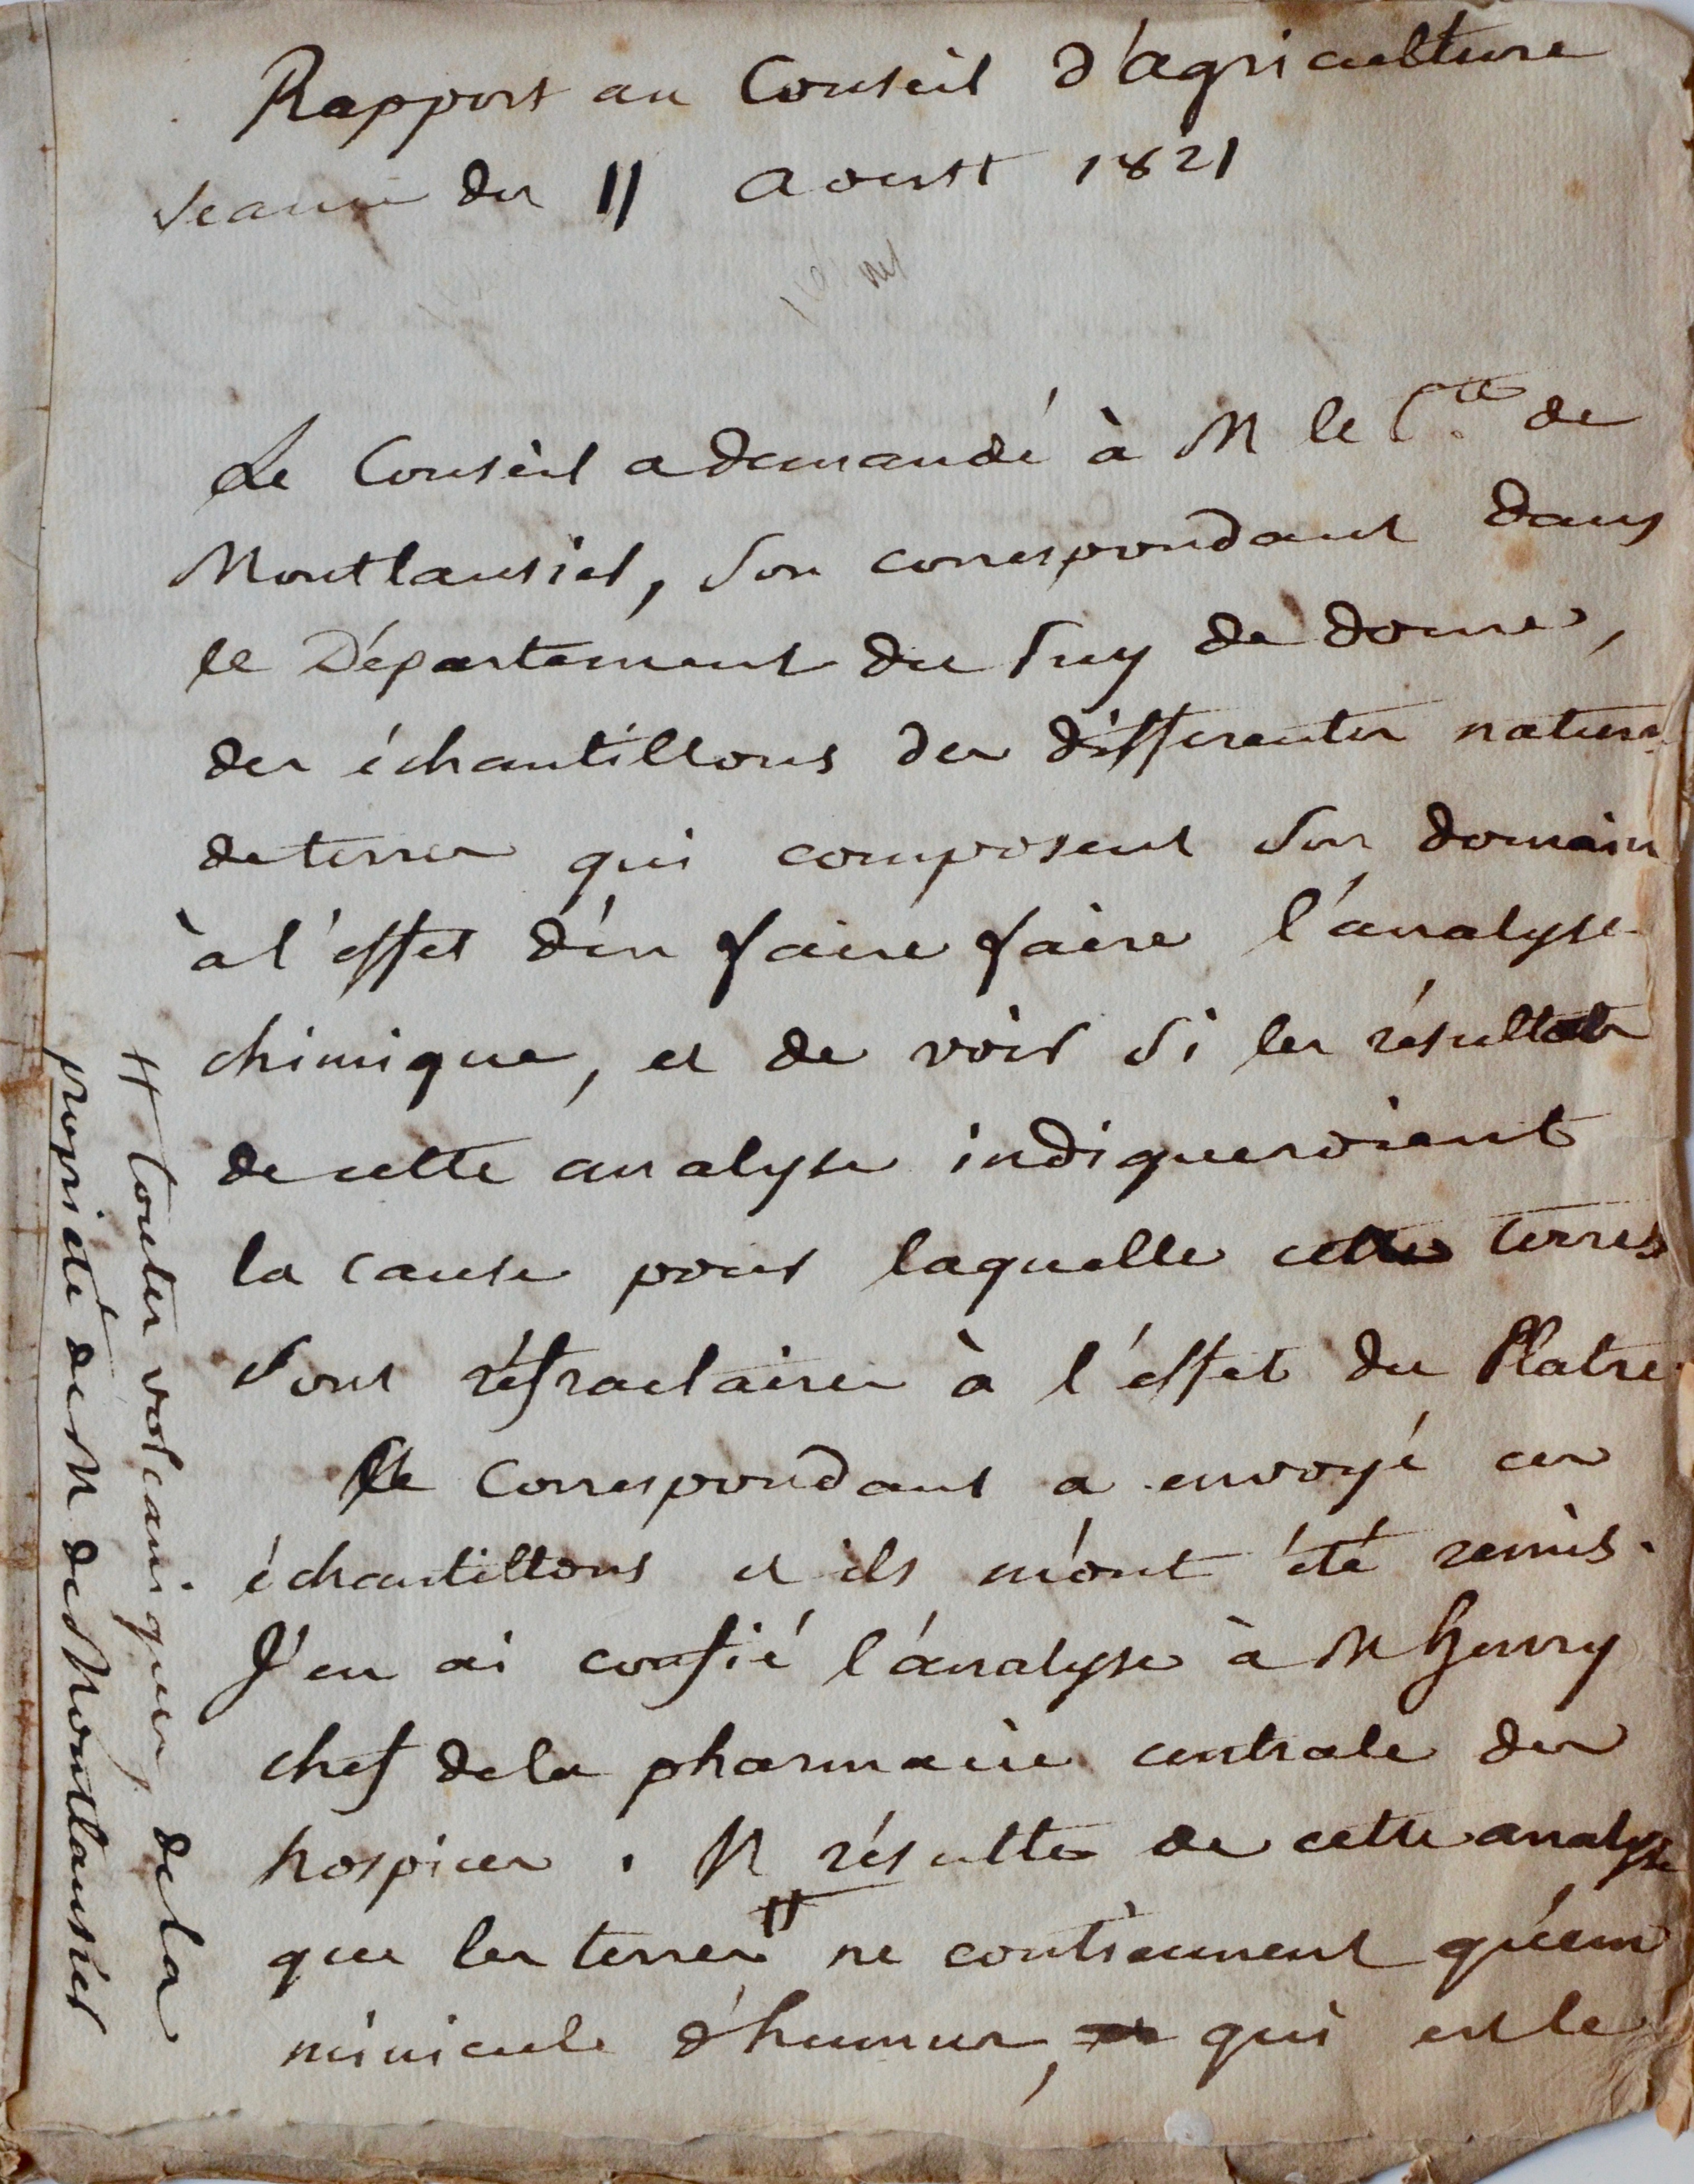 Rapport au Conseil d'agriculture
Seance du 11 aoust 1821
Le Conseil a demandé à M le Cte de
Montlausier, son correspondant dans
le Département du Puy de dome,
des échantillons des differentes natures
de terres qui composent son domaine
à l'effet d'en faire faire l'analyse
chimique, et de voir si les résultats
de cette analyse indiqueroient
la cause pour laquelle cette terres
sont réfractaires à l'effet du Platre.
Le Correspondant a envoyé ces
échantillons et ils m'ont été remis.
J'en ai confié l'analyse à M henry
chef de la pharmacie centrale des
hospices. Il résulte de cette analyse
que les terres # ne contiennent qu'un
minicule d'humus, qui est le
# toutes volcaniques, de la
proprieté de M de Montlausier